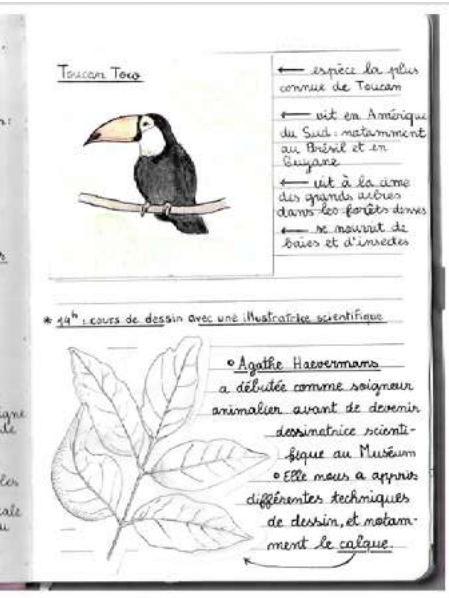 Toucan Toco
← espèce la plus
connue de Toucan
← vit en Amérique
du Sud : notamment
au Brésil et en
Guyane
← vit à la cime
des grands arbres
dans les forêts denses
← se nourrit de
baies et d'insectes
* 14h : cours de dessin avec une illustratrice scientifique
° Agathe Haevermans
a débutée comme soigneur
animalier avant de devenir
dessinatrice scienti-
fique au Muséum
° Elle nous a appris
différentes techniques
de dessin, et notam-
ment le calque.